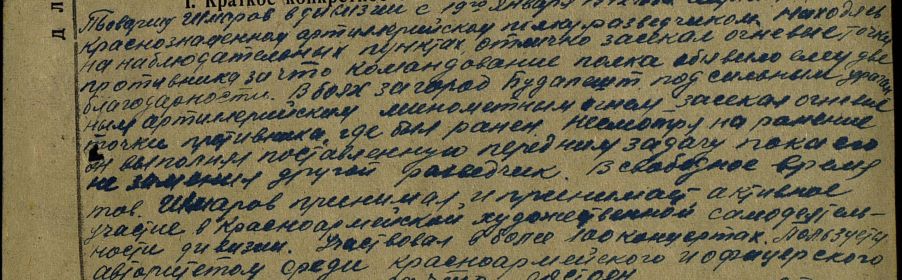 I. Краткое конкретное
Товарищ Шмаров в дивизии с 19го января
Краснознаменном артиллерийском полку разведчиком. Находясь
на наблюдательных пунктах отлично засекал огневые точки
противника за что командование полка объявило ему две
благодарности. В боях за город Будапешт под сильным ураган
ным артиллерийским минометным огнем засекал огневые
точки противника, где был ранен. Несмотря на ранение
он выполнил поставленную перед ним задачу пока его
не заменил другой разведчик. В свободное время
тов. Шмаров принимал и принимает активное
участие в Красноармейской художественной самодеятель-
ности дивизии. Участвовал в более 100 концертах. Пользуется
авторитетом среди красноармейского и офицерского
достоен